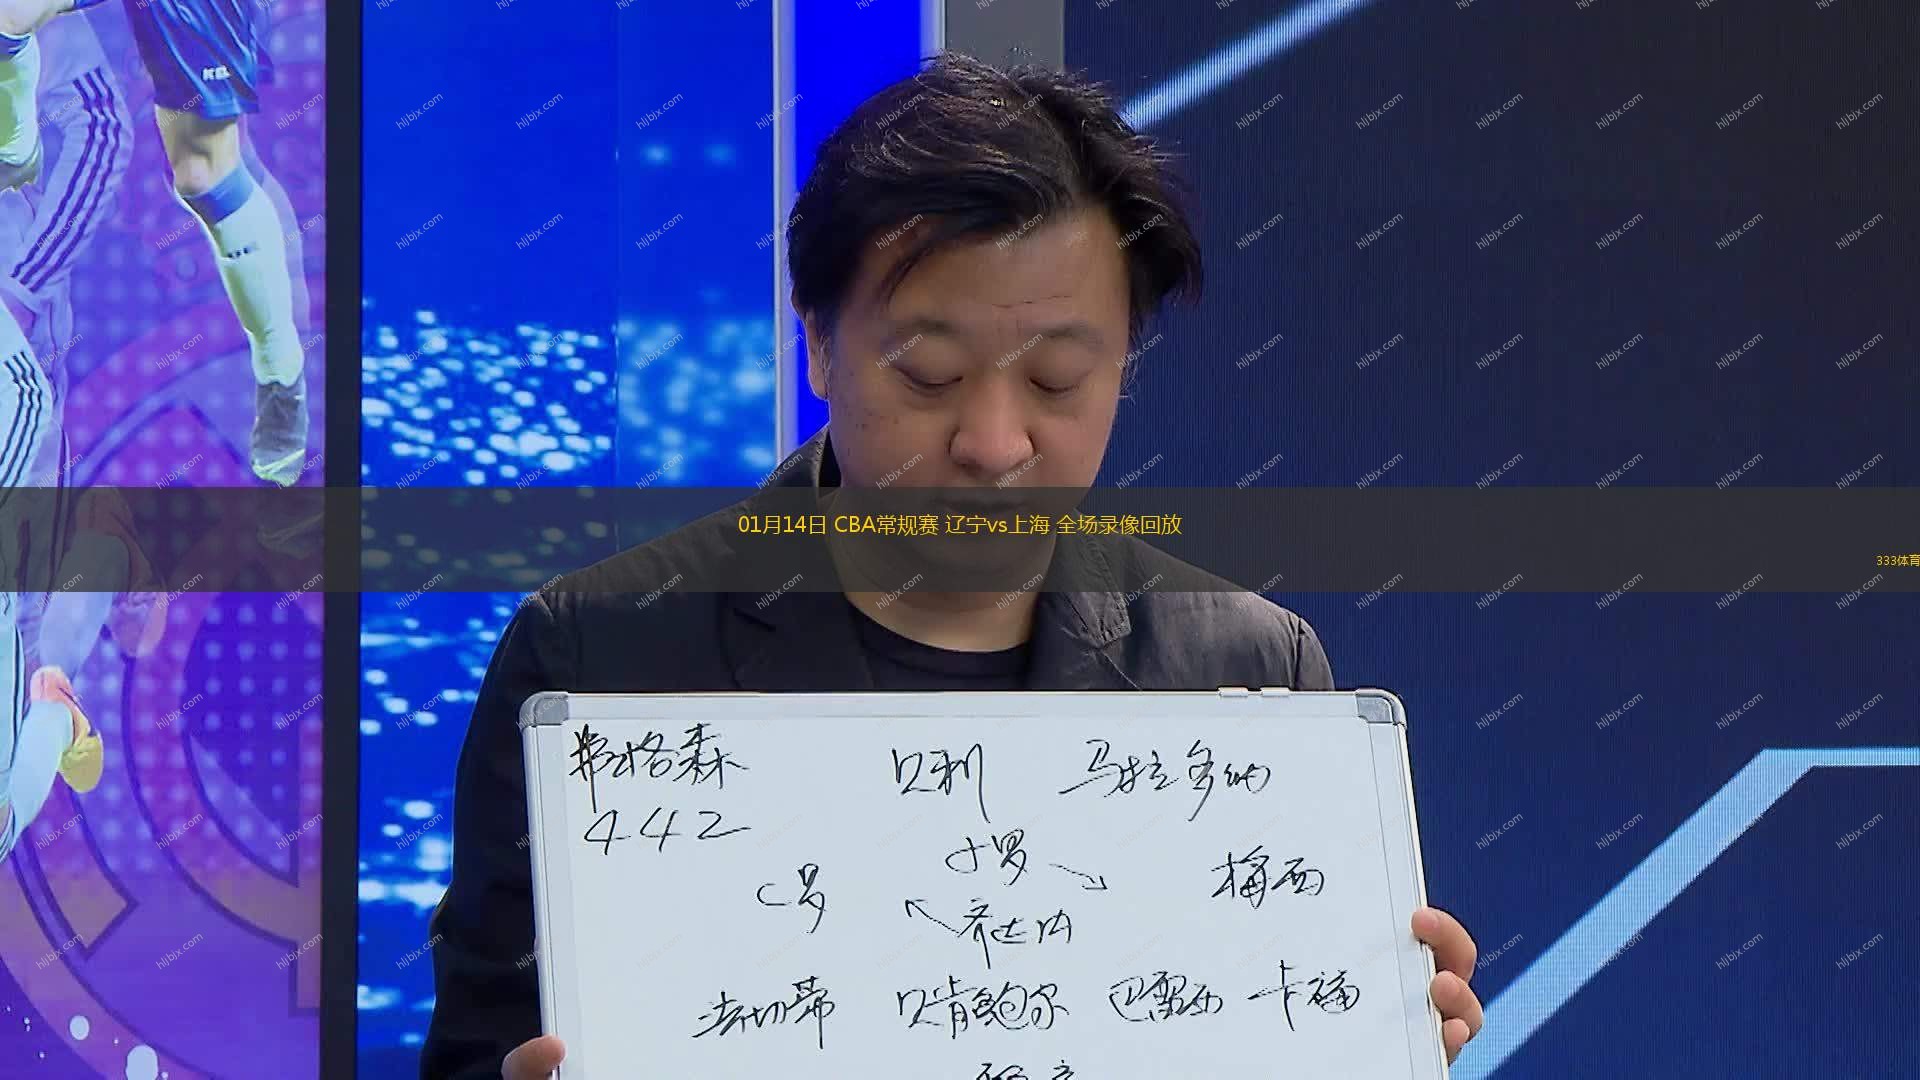 hljbjx.com
01月14日 CBA常规赛 辽宁vs上海 全场录像回放
333体育
弗格森 贝利 马拉多纳
442
小罗
C罗 梅西
齐达内
法切蒂 贝肯鲍尔 巴雷西 卡福